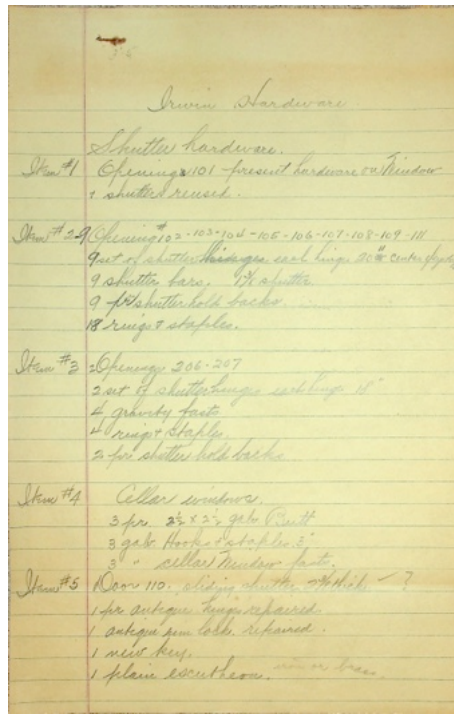 Irwin Hardware
Shutter hardware.
Item #1 Opening 101 - present hardware on Window
+ shutters reused.
Item #2 - 9 Opening # 102 - 103 - 104 - 105 - 106 - 107 - 108 - 109 - 111
9 set of shutter hinges each hinge 20" center
9 shutter bars. 1 3/8 shutter
9 pr shutter hold backs
18 rings + staples.
Item #3 2 Opening 206 - 207
2 set of shutter hinges each hinge 18"
4 gravity fasts
4 rings + staples
2 pr shutter hold backs
Item #4 Cellar windows.
3 pr. 2½ x 2½ galv. Butt
3 galv. Hooks + staples 3"
3 " cellar Window fast.
Item #5 1 Door 110. sliding shutter thick - ?
1 pr antique hinges repaired.
1 antique rim lock. repaired.
1 new key.
1 plain escutcheon. iron or brass.